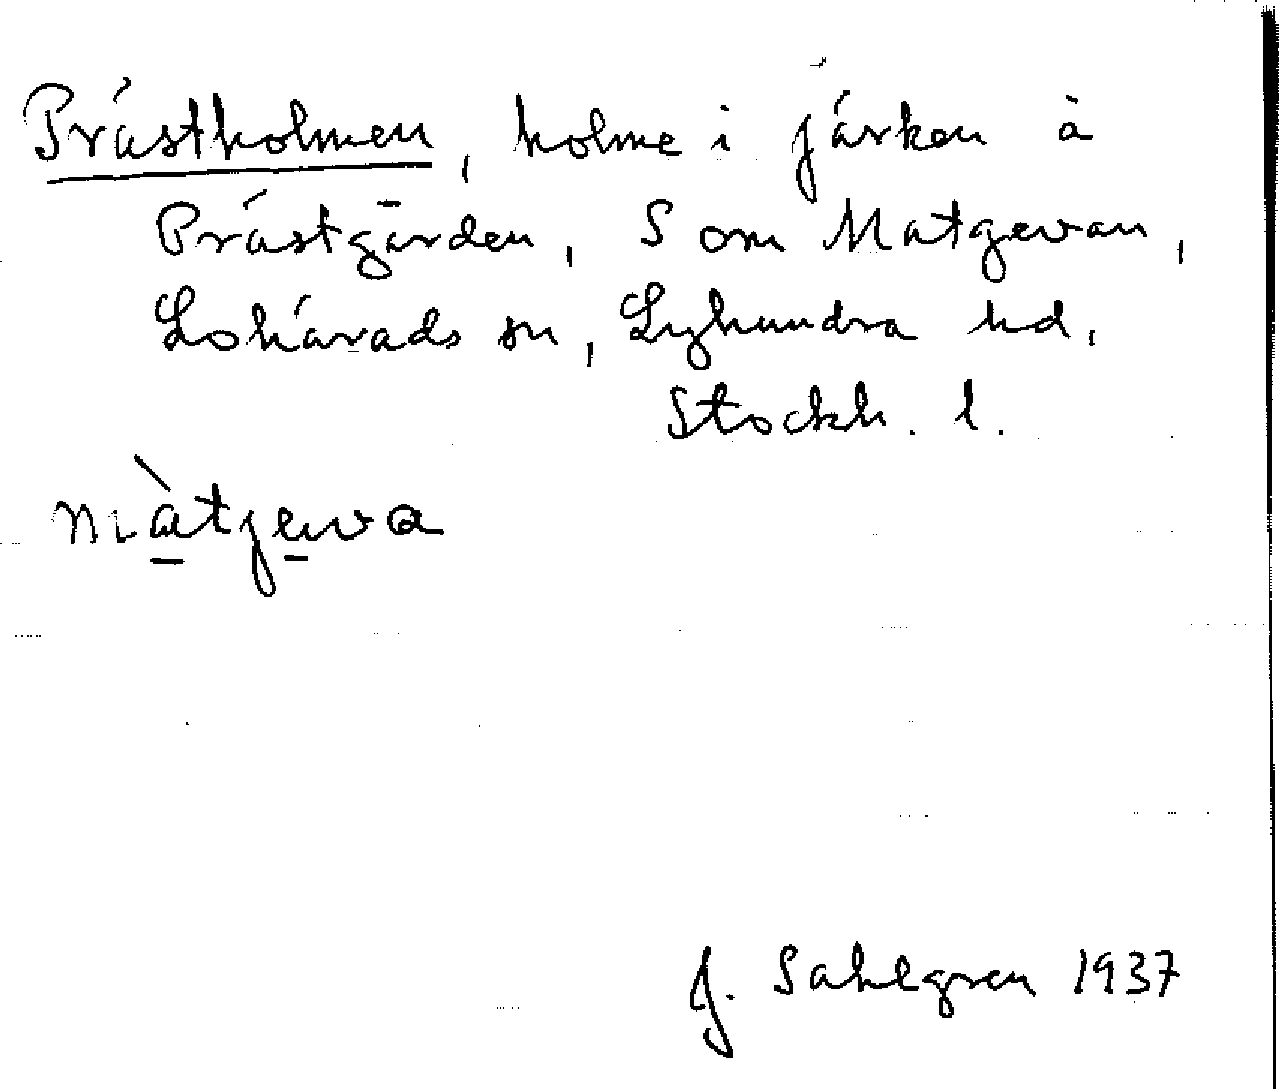 Prästholmen, holme i Järken å
Prästgården, S om Matgevan,
Lohärads sn, Lyhundra hd,
Stockh. l.
màtjewa
J. Sahlgren 1937